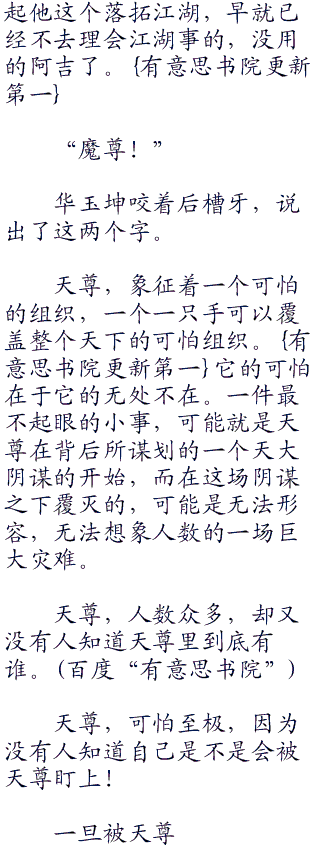 起他这个落拓江湖，早就已
经不去理会江湖事的，没用
的阿吉了。{有意思书院更新
第一}
“魔尊！”
华玉坤咬着后槽牙，说
出了这两个字。
天尊，象征着一个可怕
的组织，一个一只手可以覆
盖整个天下的可怕组织。{有
意思书院更新第一}它的可怕
在于它的无处不在。一件最
不起眼的小事，可能就是天
尊在背后所谋划的一个天大
阴谋的开始，而在这场阴谋
之下覆灭的，可能是无法形
容，无法想象人数的一场巨
大灾难。
天尊，人数众多，却又
没有人知道天尊里到底有
谁。(百度“有意思书院”)
天尊，可怕至极，因为
没有人知道自己是不是会被
天尊盯上！
一旦被天尊